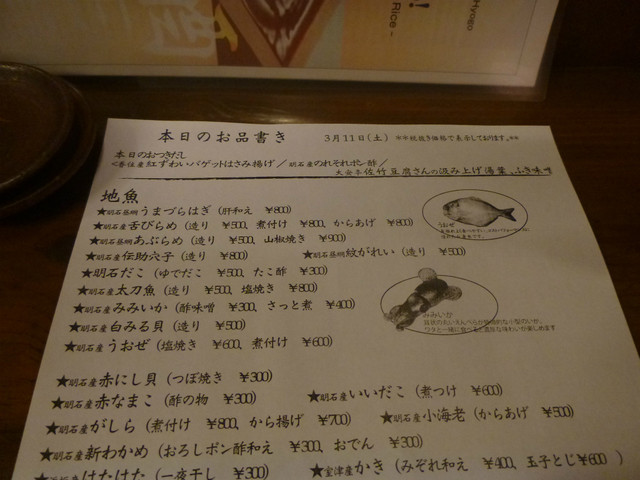 Hyogo
Rice -
!
本日のお品書き 3月11日(土) ※中税抜き価格で表示しております。※※
本日のおつきだし
<香住産紅ずわいバゲットはさみ揚げ/明石産のれそれポン酢/
大安亭 佐竹豆腐さんの汲み上げ湯葉、ふき味噌
地魚
★明石昼網うまづらはぎ (肝和え ¥800)
★明石産舌びらめ (造り ¥500、煮付け ¥800、からあげ ¥800)
★明石昼網あぶらめ (造り ¥500、山椒焼き ¥900)
★明石産伝助穴子 (造り ¥800) ★明石昼網紋がれい (造り ¥500)
★明石だこ (ゆでだこ ¥500、たこ酢 ¥300)
★明石産太刀魚 (造り ¥500、塩焼き ¥800)
★明石産みみいか (酢味噌 ¥300、さっと煮 ¥400)
★明石産白みる貝 (造り ¥500)
★明石産うおぜ (塩焼き ¥600、煮付け ¥600)
うおぜ
みみいか
★明石産赤にし貝 (つぼ焼き ¥300)
★明石産赤なまこ (酢の物 ¥300) ★明石産いいだこ (煮つけ ¥600)
★明石産がしら (煮付け ¥800、から揚げ ¥700) ★明石産小海老 (からあげ ¥500)
★明石産新わかめ (おろしポン酢和え ¥300、おでん ¥300)
はたはた (一夜干し ¥300) ★室津産かき (みぞれ和え ¥400、玉子とじ¥600 )